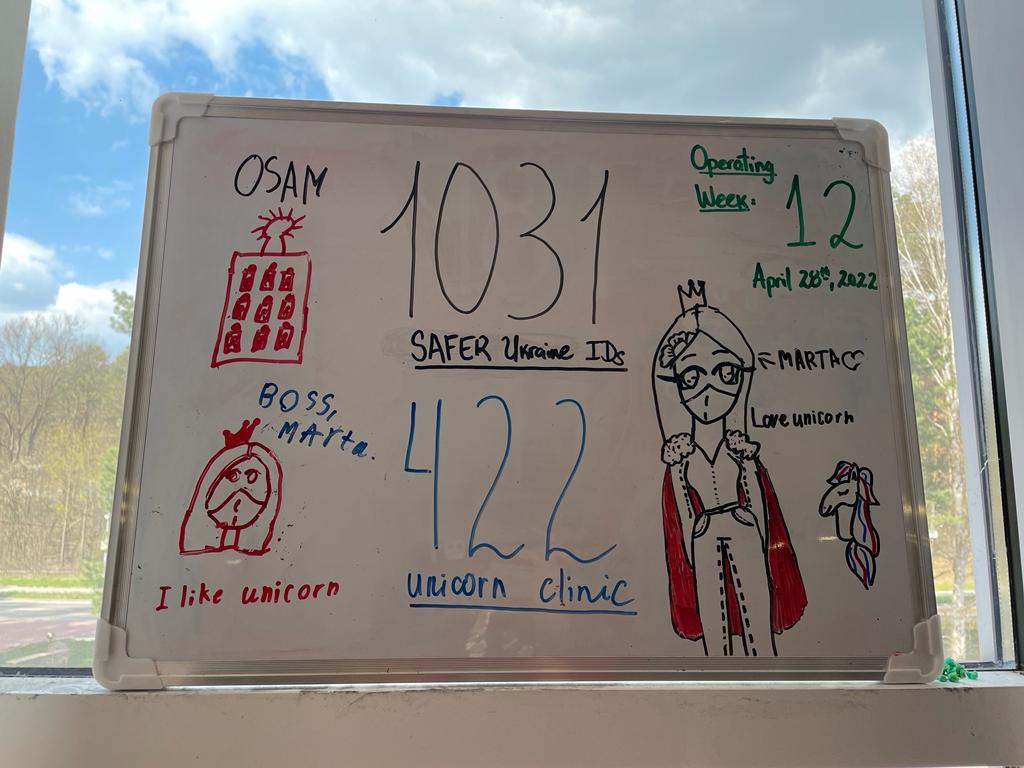 OSAM
1031
SAFER Ukraine IDs
Operating
Week: 12
April 28th, 2022
BOSS,
MARTa.
422
unicorn clinic
I like unicorn
MARTA
Love unicorn